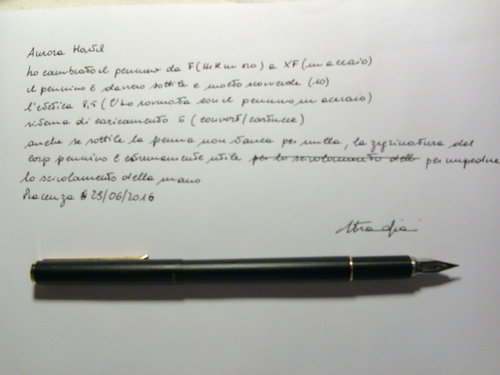 Aurora Hastil
ho cambiato il pennino da F (14K in oro) a XF (in acciaio)
il pennino è davvero sottile e molto scorrevole (10)
l'estetica 9,5 (l'ho rovinata con il pennino in acciaio)
sistema di caricamento 6 (convert/cartucce)
anche se sottile la penna non stanca per nulla, la zigrinatura del
corpo pennino è estremamente utile per lo scivolamento dell per impedire
lo scivolamento della mano
Piacenza 29/06/2016